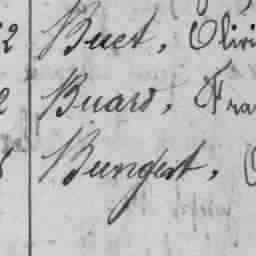 2 Buet, Olivi
2 Buard, Fra
Bungert,